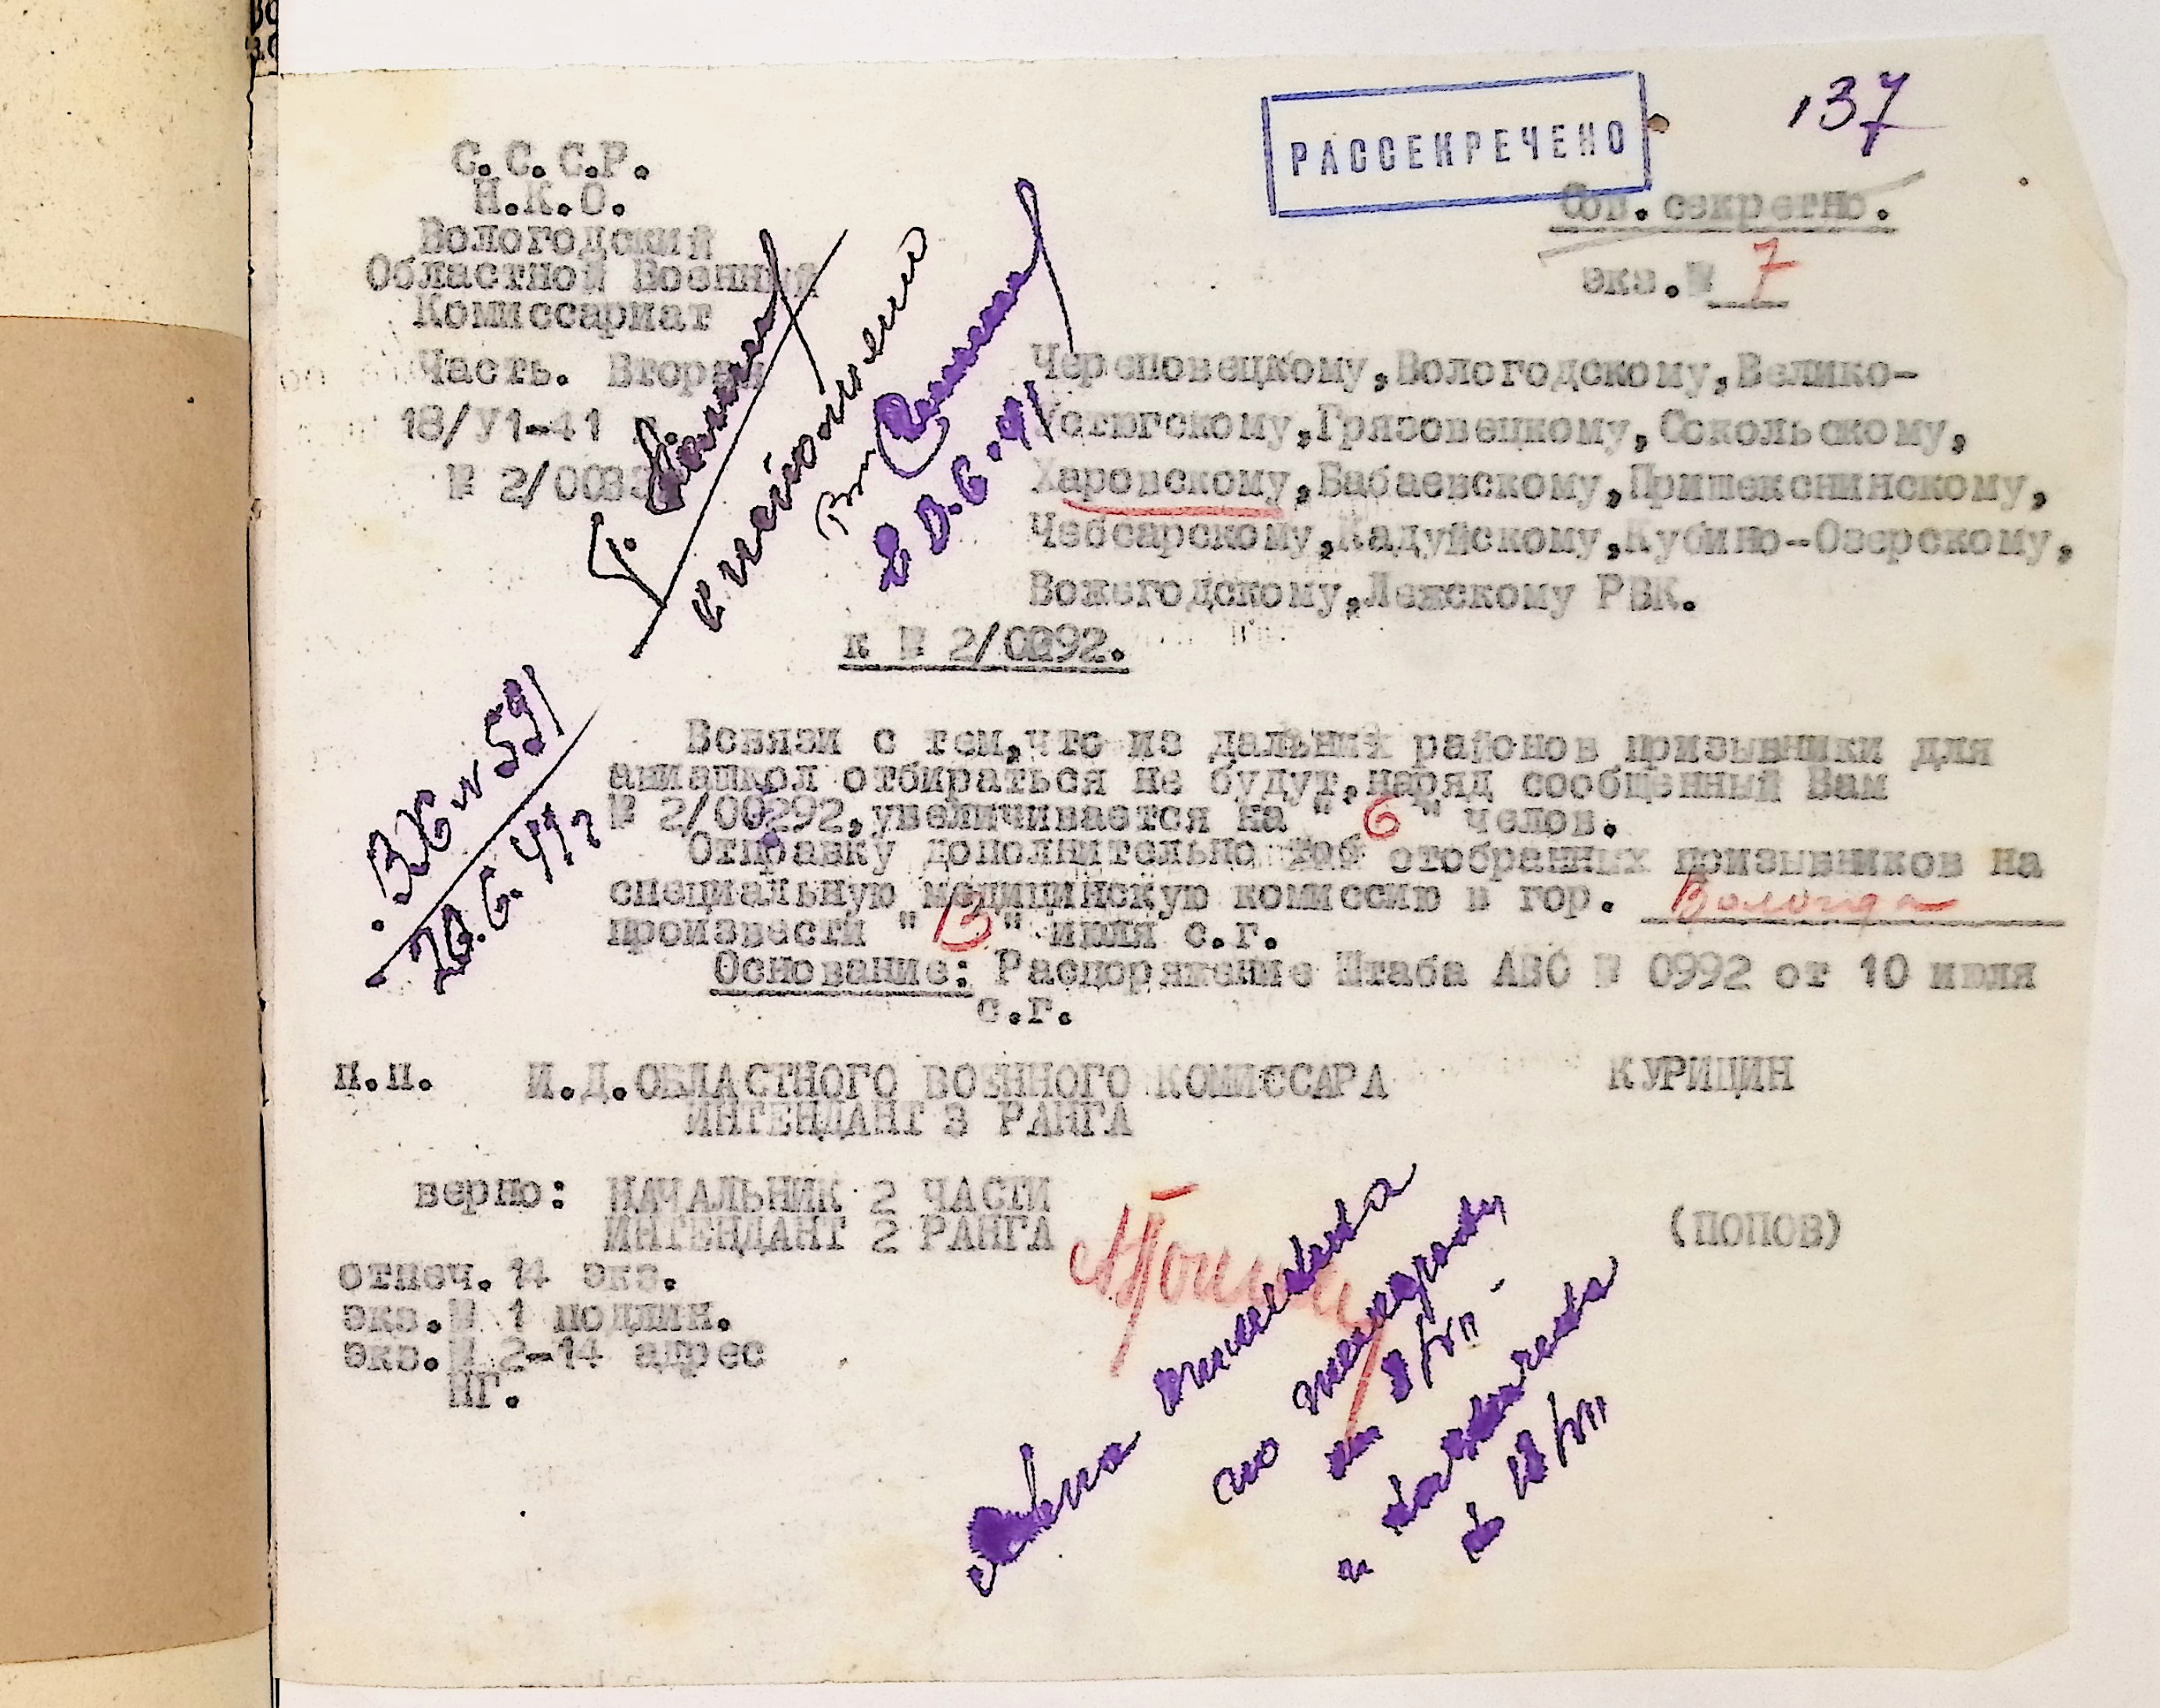 137
РАССЕКРЕЧЕНО
Сов. секретно.
экз.№ 7
С.С.С.Р.
Н.К.О.
Вологодский
Областной Военный
Комиссариат
Часть. Вторая
18/У1-41 г.
№ 2/0083
к исполнению
20.6.41
Череповецкому,Вологодскому,Велико-
Устюгскому,Грязовецкому,Сокольскому,
Харовскому,Бабаевскому,Пришекснинскому,
Чебсарскому,Кадуйскому,Кубино-Озерскому,
Вожегодскому,Лежскому РВК.
к № 2/00292.
Вх № 591
20.6.41г
Всвязи с тем,что из дальних районов призывники для
авиашкол отбираться не будут,наряд сообщенный Вам
№ 2/00292,увеличивается на " 6 " челов.
Отправку дополнительно отобранных призывников на
специальную медицинскую комиссию в гор. Вологда
произвести " " июля с.г.
Основание: Распоряжение Штаба АВО № 0992 от 10 июля
с.г.
п.п. И.Д.ОБЛАСТНОГО ВОЕННОГО КОМИССАРА КУРИЦИН
ИНТЕНДАНТ 3 РАНГА
верно: НАЧАЛЬНИК 2 ЧАСТИ
ИНТЕНДАНТ 2 РАНГА (ПОПОВ)
отпеч. 14 экз.
экз.№ 1 подлин.
экз.№ 2-14 адрес
НГ.
на 8/VII
и
18/VII